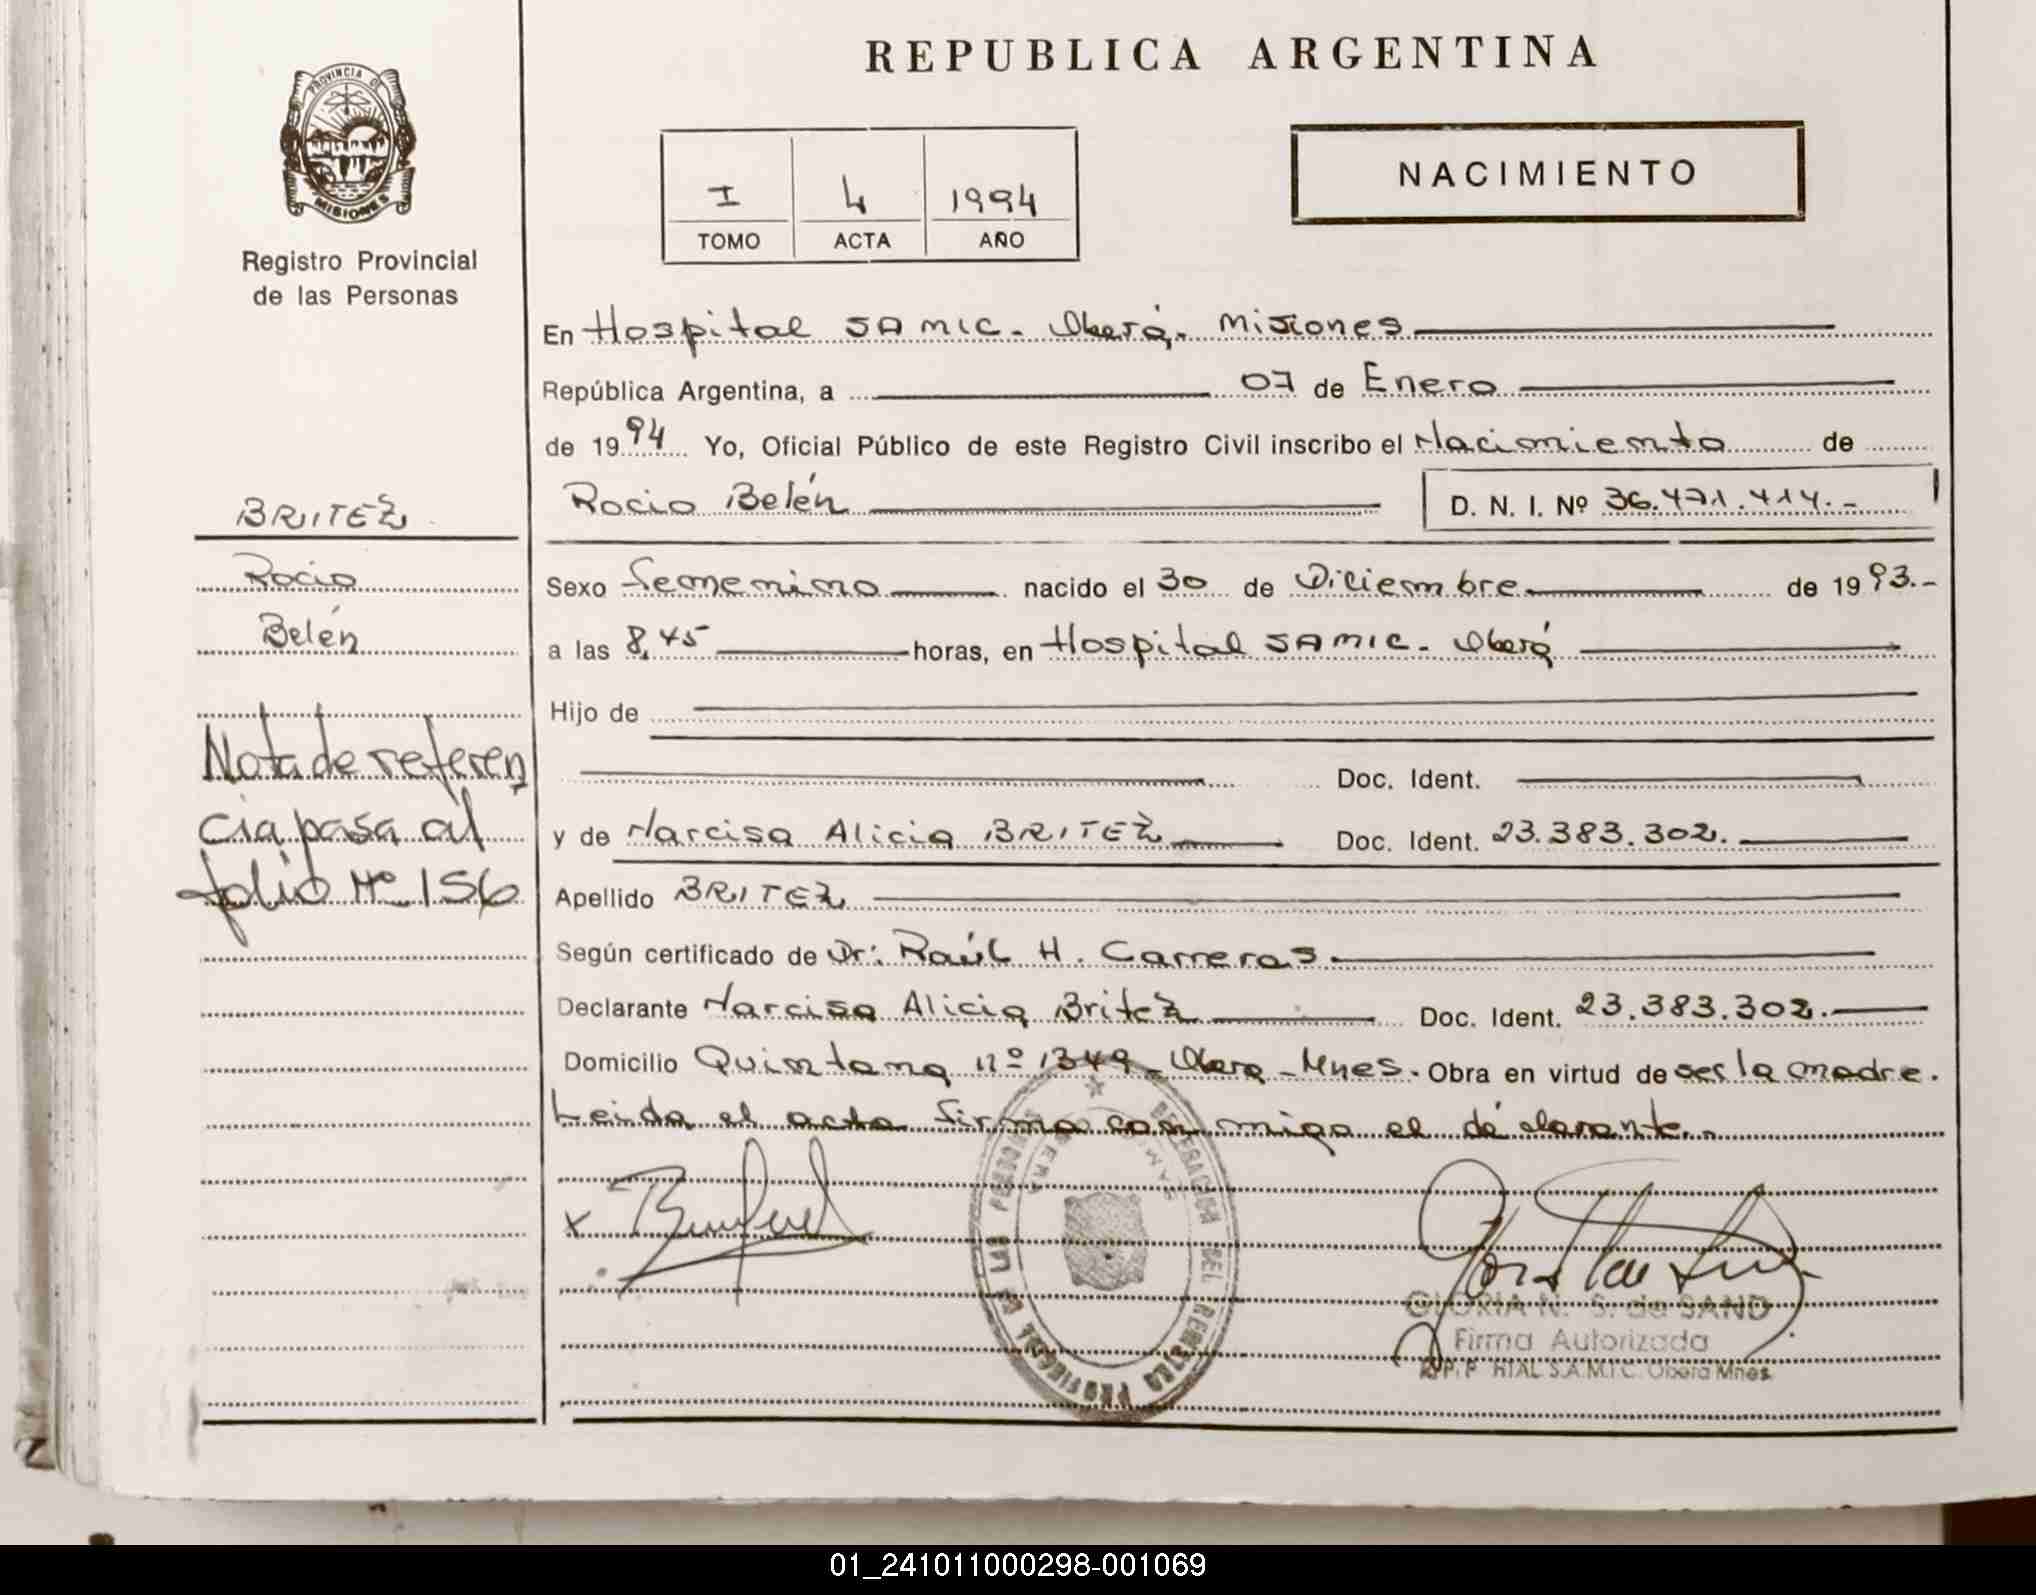 REPUBLICA ARGENTINA
PROVINCIA DE
MISIONES
Registro Provincial
de las Personas
I 4 1994
TOMO ACTA AÑO
NACIMIENTO
En Hospital SAMIC. Oberá. Misiones
República Argentina, a 07 de Enero
de 1994 Yo, Oficial Público de este Registro Civil inscribo el Nacimiento de
Rocio Belén D. N. I. Nº 36.471.414.-
BRITEZ
Rocio
Belén
Nota de referen
cia pasa al
folio Nº 156
Sexo femenino nacido el 30 de Diciembre de 1993.-
a las 8,45 horas, en Hospital SAMIC. Oberá
Hijo de
Doc. Ident.
y de Narcisa Alicia BRITEZ Doc. Ident. 23.383.302.
Apellido BRITEZ
Según certificado de Dr: Raúl H. Carreras
Declarante Narcisa Alicia Britez Doc. Ident. 23.383.302.
Domicilio Quintana nº 1349 - Obera - Mnes. Obra en virtud de ser la madre.
Leida el acta firma con migo el declarante.
x
DELEGACION DEL REGISTRO PROVINCIAL DE LAS PERSONAS
SAMIC OBERA
GLORIA N. S. de SAND
Firma Autorizada
R.P.P. HTAL S.A.M.I.C. Obera Mnes.
01_241011000298-001069